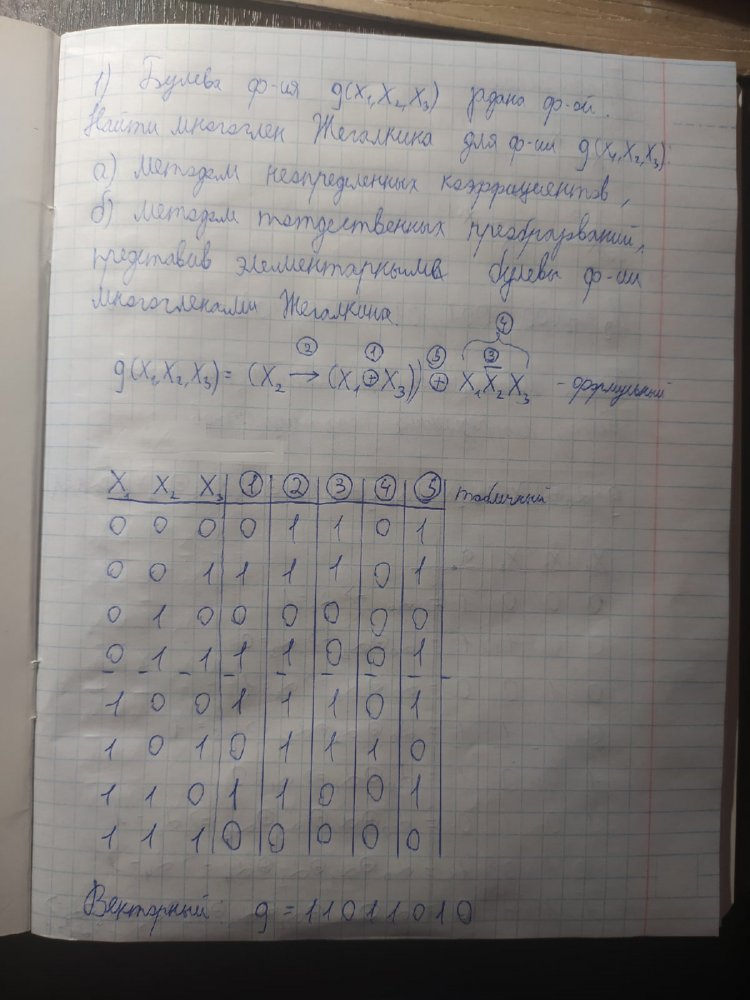 1) Булева ф-ия g(X₁,X₂,X₃) задана ф-ой.
Найти многоглен Жегалкина для ф-ии g(X₁,X₂,X₃):
а) методом неопределенных коэффициентов,
б) методом тождественных преобразований,
представив элементарными булевы ф-ии
многогленами Жегалкина.
④
② ① ⑤ ③
g(X₁,X₂,X₃) = (X₂ → (X₁ ⊕ X₃)) ⊕ X₁X̅₂X₃ - формульный
X₁ X₂ X₃ ① ② ③ ④ ⑤ табличный
0 0 0 0 1 1 0 1
0 0 1 1 1 1 0 1
0 1 0 0 0 0 0 0
0 1 1 1 1 0 0 1
1 0 0 1 1 1 0 1
1 0 1 0 1 1 1 0
1 1 0 1 1 0 0 1
1 1 1 0 0 0 0 0
Векторный g = 11011010